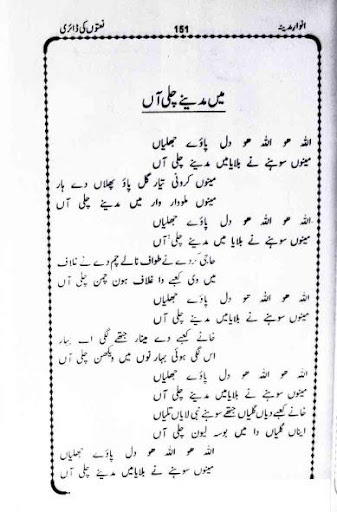 انوار مدینہ 151 نعتوں کی ڈائری
میں مدینے چلی آں
اللہ ھو اللہ ھو دل پاؤے جھلیاں
مینوں سوہنے نے بلایا میں مدینے چلی آں
مینوں کرونی تیار گل پاؤ پھلاں دے ہار
مینوں ملودار وار میں مدینے چلی آں
اللہ ھو اللہ ھو دل پاؤے جھلیاں
مینوں سوہنے نے بلایا میں مدینے چلی آں
حاجی کردے نے طواف نالے چم دے نے غلاف
میں وی کعبے دا غلاف ہون چمن چلی آں
اللہ ھو اللہ ھو دل پاؤے جھلیاں
مینوں سوہنے نے بلایا میں مدینے چلی آں
خانے کعبے دے مینار جتھے لگی اے بہار
اس لگی ہوئی بہار نوں میں ویکھن چلی آں
اللہ ھو اللہ ھو دل پاؤے جھلیاں
مینوں سوہنے نے بلایا میں مدینے چلی آں
خانے کعبے دیاں گلیاں جتھے سوہنے نبی لایاں تلیاں
ایناں گلیاں دا میں بوسہ لیون چلی آں
اللہ ھو اللہ ھو دل پاؤے جھلیاں
مینوں سوہنے نے بلایا میں مدینے چلی آں